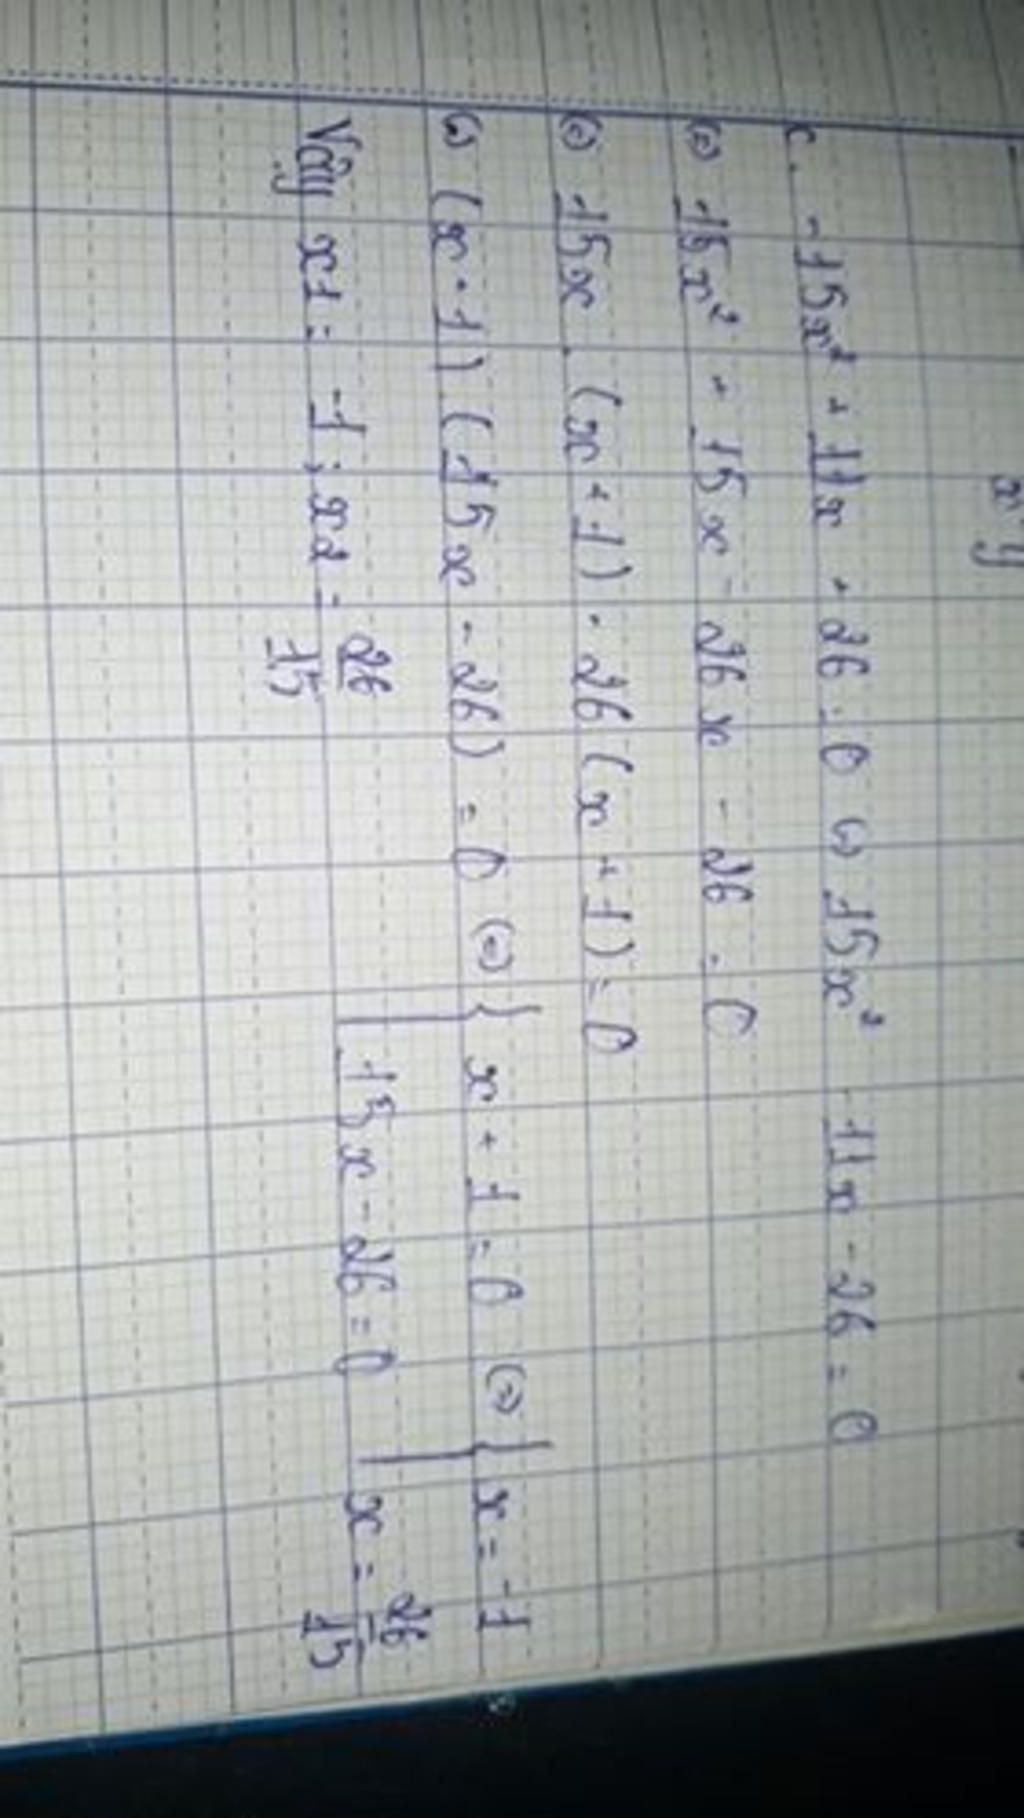 x y
c. -15x² + 11x + 26 = 0 (=) 15x² - 11x - 26 = 0
(=) 15x² + 15x - 26x - 26 = 0
(=) 15x . (x + 1) - 26(x + 1) = 0
(=) (x + 1) (15x - 26) = 0 (=) { x + 1 = 0 (=) { x = -1
15x - 26 = 0 x = 26/15
Vậy x1 = -1 ; x2 = 26/15